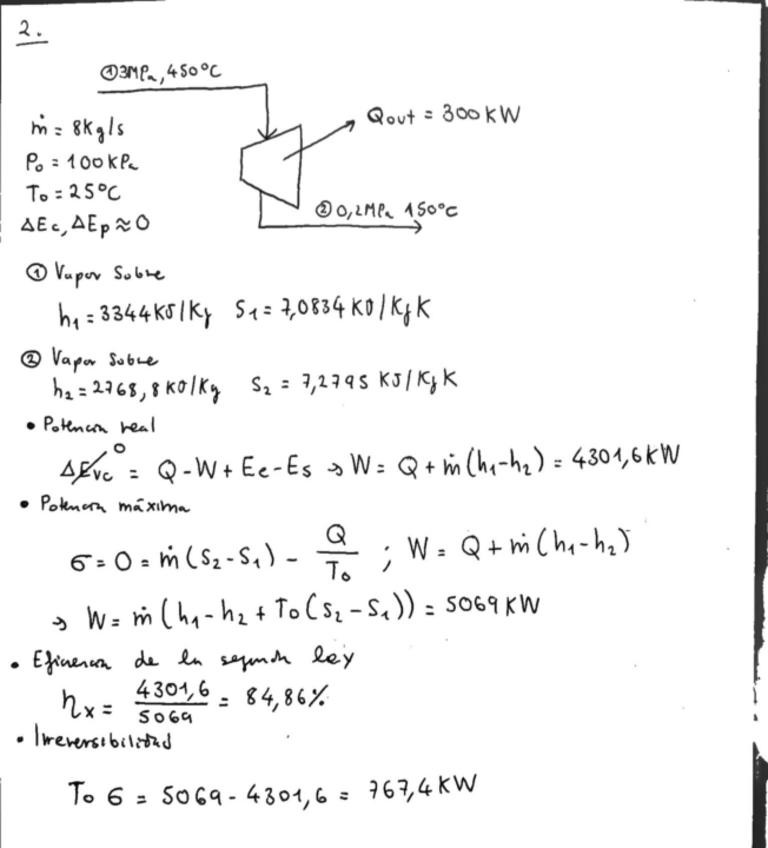 2.
①3MPa, 450°C
Qout = 300 KW
ṁ = 8Kg/s
P₀ = 100 KPa
T₀ = 25°C
ΔEc, ΔEp ≈ 0
② 0,2MPa 150°C
① Vapor Sobre
h₁ = 3344 KJ/Kg S₁ = 7,0834 KJ/Kg K
② Vapor Sobre
h₂ = 2768,8 KJ/Kg S₂ = 7,2795 KJ/Kg K
• Potencia real
ΔEvc⁰ = Q - W + Ee - Es → W = Q + ṁ(h₁-h₂) = 4301,6 KW
• Potencia máxima
σ = 0 = ṁ(S₂-S₁) - Q/T₀ ; W = Q + ṁ(h₁-h₂)
→ W = ṁ(h₁-h₂ + T₀(S₂-S₁)) = 5069 KW
• Eficiencia de la segunda ley
ηx = 4301,6/5069 = 84,86%
• Irreversibilidad
T₀ σ = 5069 - 4301,6 = 767,4 KW